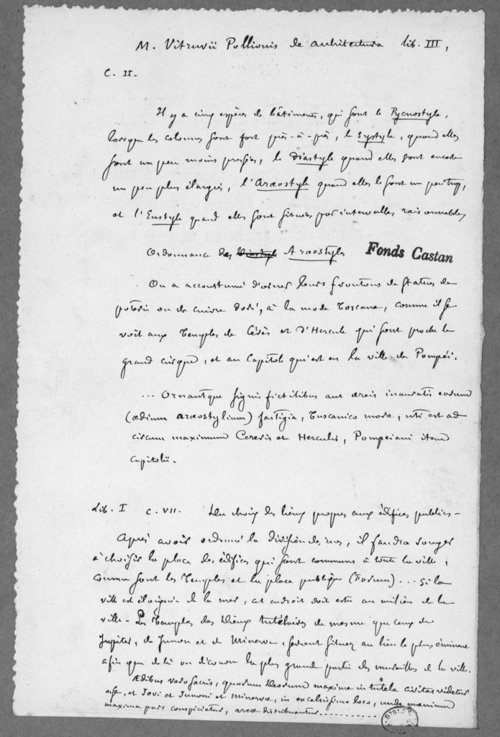 M. Vitruvii Pollionis de architectura lib. III,
C. II.
Il y a cinq espèces de bâtiments, qui sont le Pycnostyle,
lorsque les colonnes sont fort près-à-près, le Systyle, quand elles
sont un peu moins pressées, le diastyle quand elles sont encore
un peu plus élargies, l'Aræostyle quand elles le sont un peu trop,
et l'Eustyle quand elles sont situées par intervalles raisonnables
Ordonnance des Aræostyles
Fonds Castan
On a accoustumé d'orner leurs frontons de statues de
poterie ou de cuivre doré, à la mode Toscane, comme il se
voit aux Temples de Cérès et d'Hercule qui sont proche le
grand cirque, et au Capitole qui est en la ville de Pompéi.
... Ornantque signis fictilibus aut æreis inauratis earum
(ædium aræostylium) fastigia, Tuscanico more, uti est ad
circum maximum Cereris et Herculis, Pompeiani item
Capitolii.
Lib. I C. VII. Du choix des lieux propres aux édifices publics -
Après avoir ordonné la division des rues, il faudra songer
à choisir la place des édifices qui sont communs à toute la ville,
comme sont les Temples et la place publique (Forum)... Si la
ville est éloignée de la mer, cet endroit doit estre au milieu de la
ville. Les Temples des Dieux tutélaires de mesme que ceux de
Jupiter, de Junon et de Minerve, seront situez au lieu le plus éminent
afin que de là on découvre la plus grande partie des murailles de la ville.
Ædibus vero sacris, quorum Deorum maxime in tutela civitas videtur
esse, et Jovi et Junoni et Minervæ, in excelsissimo loco, unde mœnium
maxima pars conspiciatur, areæ distribuantur............